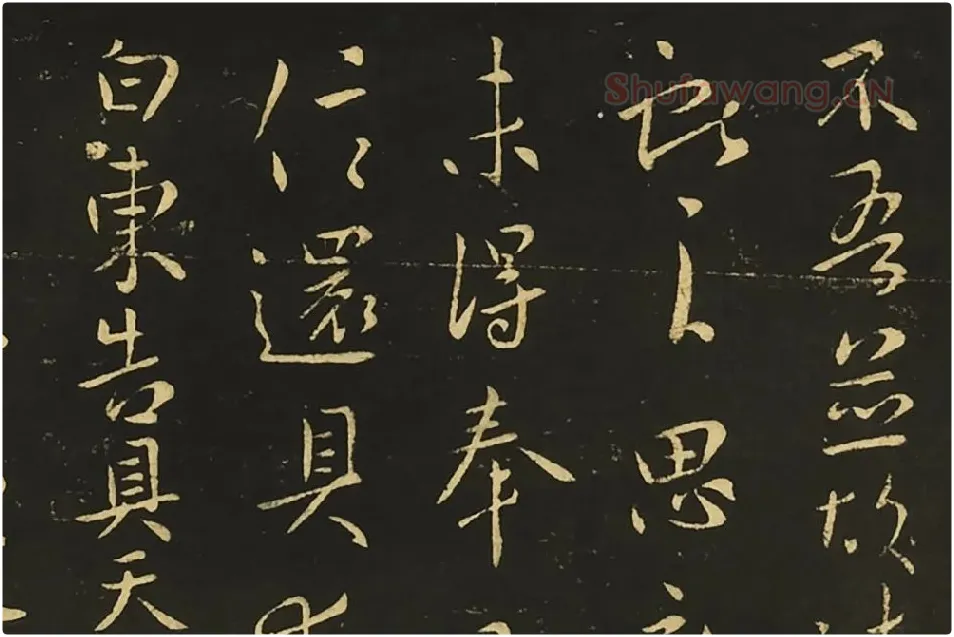 不吾並故
之思
未得奉
信還具
白東告具天
Shufawang.CN